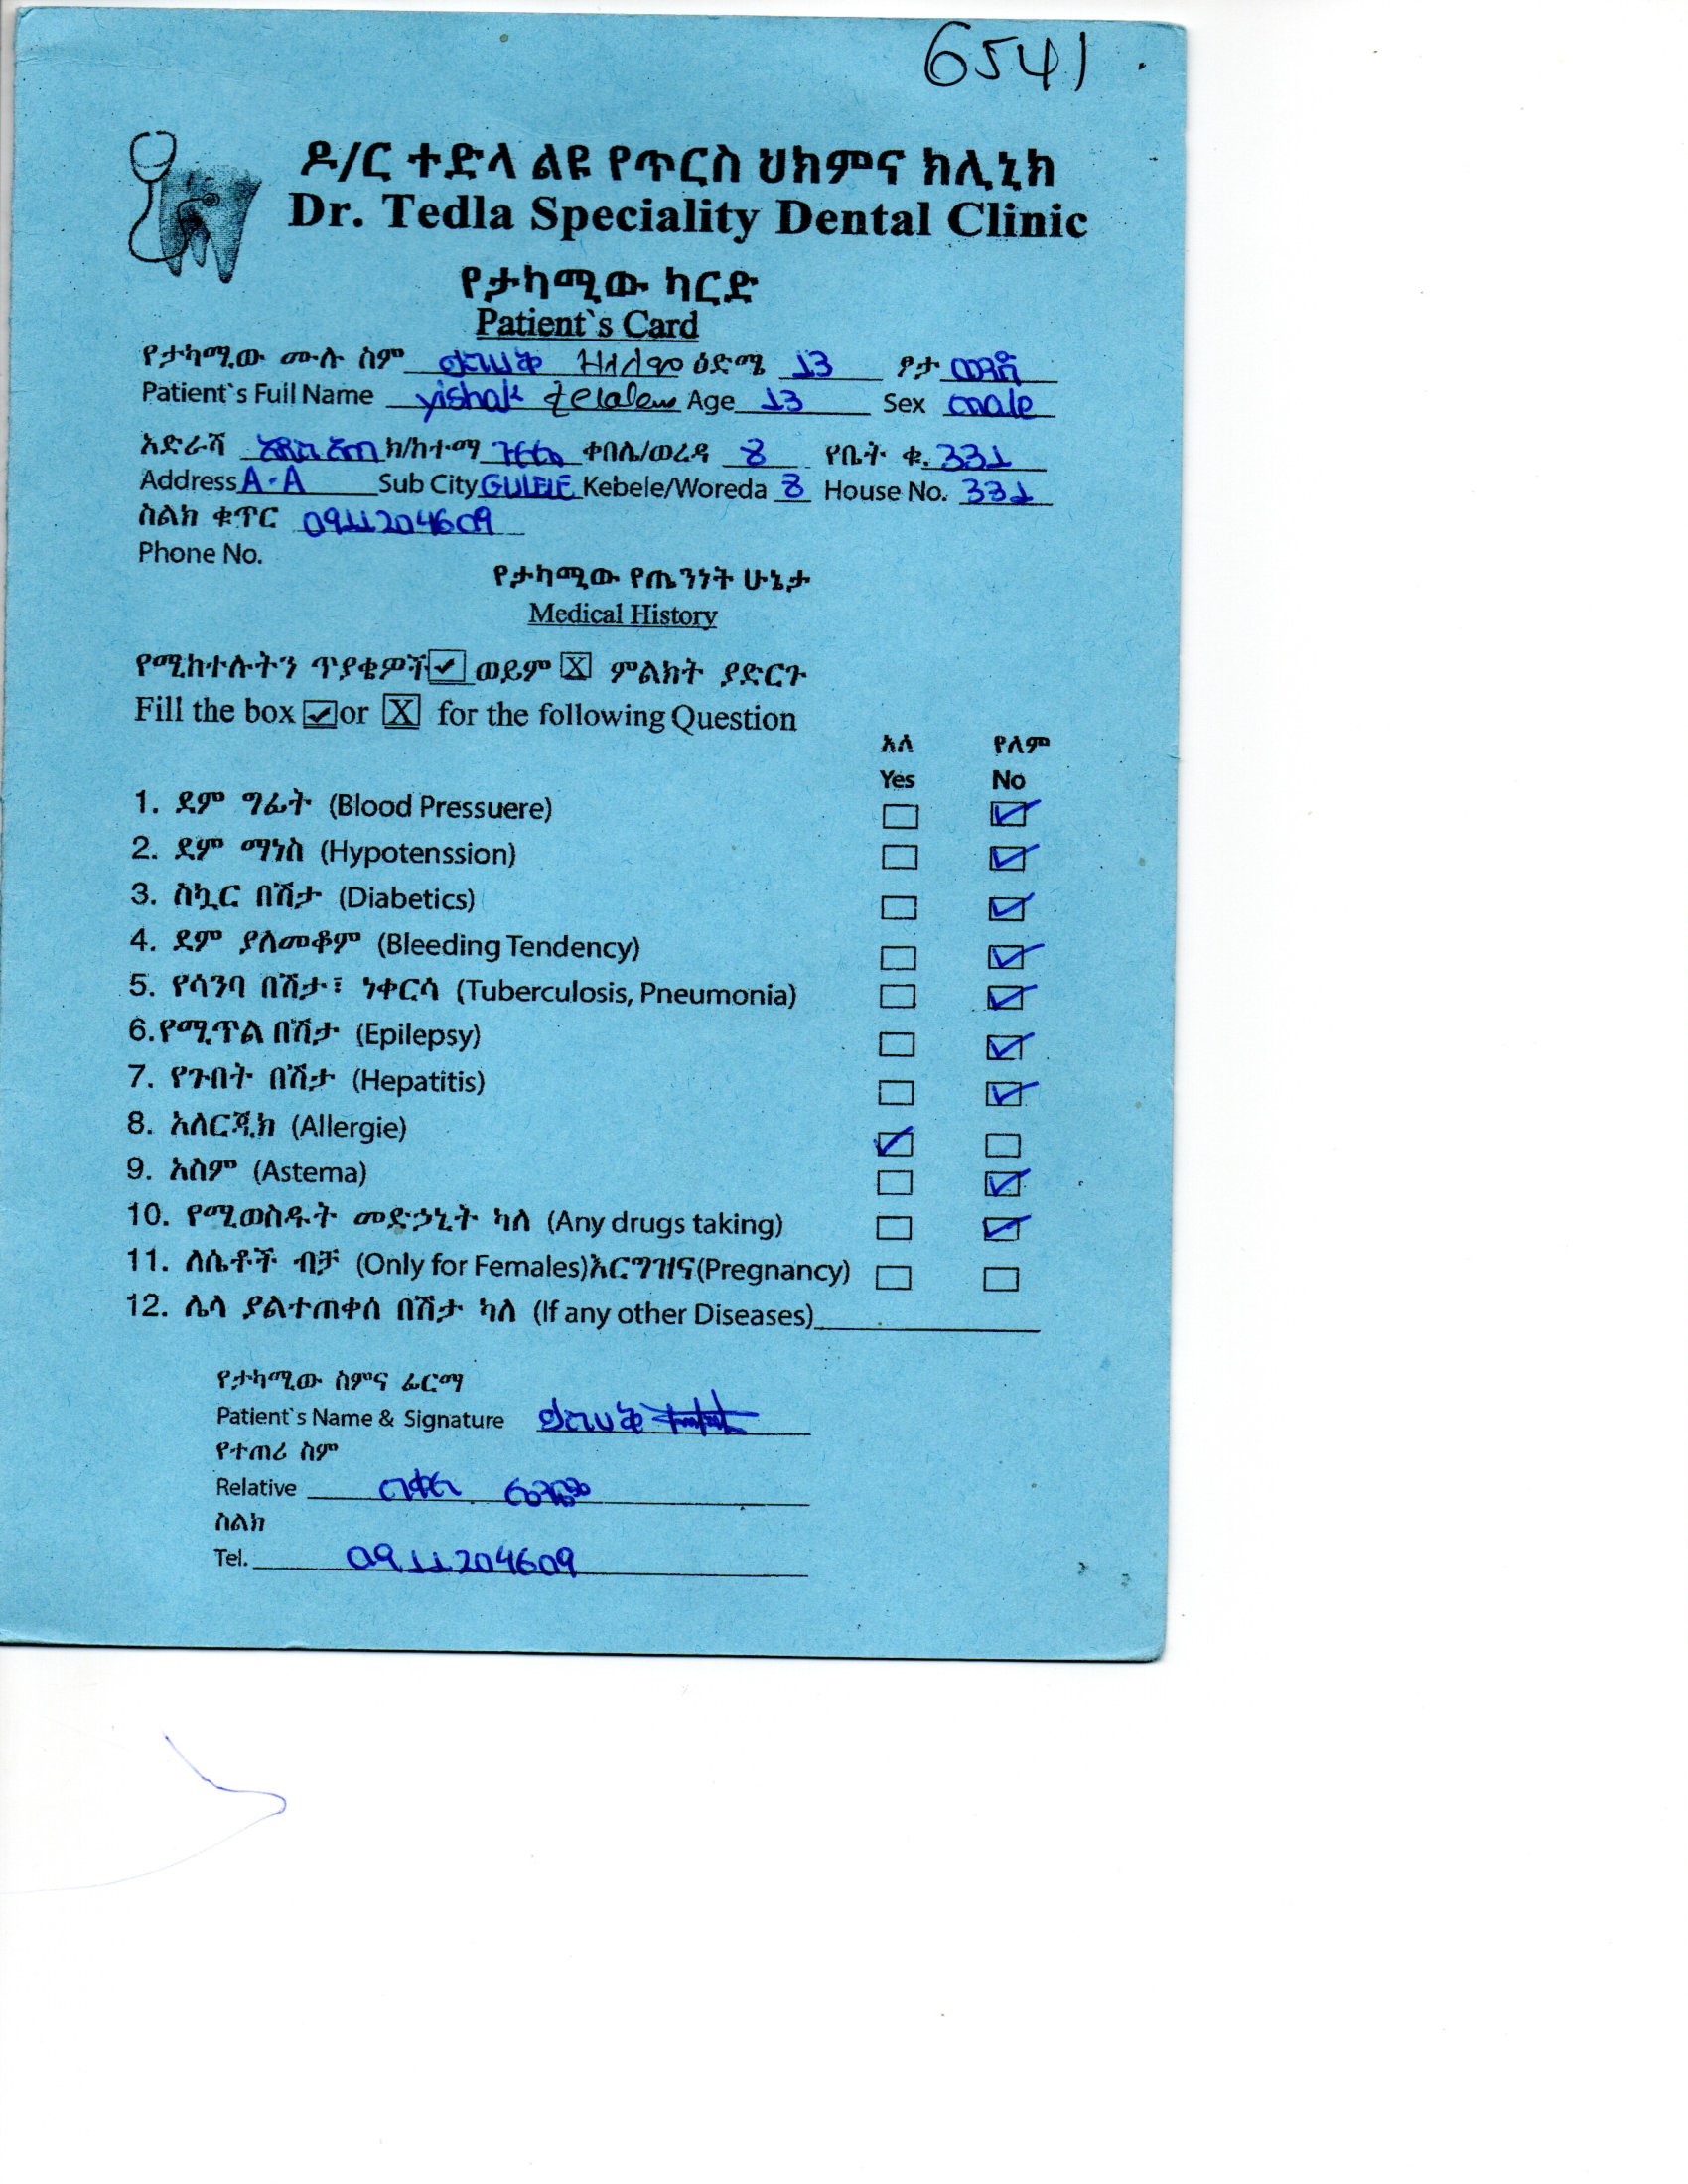 6541
ዶ/ር ተድላ ልዩ የጥርስ ህክምና ክሊኒክ
Dr. Tedla Speciality Dental Clinic
የታካሚው ካርድ
Patient`s Card
የታካሚው ሙሉ ስም ይስሀቅ ዘላለም ዕድሜ 13 ፆታ ወንድ
Patient`s Full Name yishak zelalem Age 13 Sex male
አድራሻ አዲስ አበባ ክ/ከተማ ጉለሌ ቀበሌ/ወረዳ 8 የቤት ቁ. 331
Address A.A Sub City GULELE Kebele/Woreda 8 House No. 331
ስልክ ቁጥር 0911204609
Phone No.
የታካሚው የጤንነት ሁኔታ
Medical History
የሚከተሉትን ጥያቄዎች ✓ ወይም X ምልክት ያድርጉ
Fill the box ✓ or X for the following Question
አለ የለም
Yes No
1. ደም ግፊት (Blood Pressuere) ☐ ☑
2. ደም ማነስ (Hypotenssion) ☐ ☑
3. ስኳር በሽታ (Diabetics) ☐ ☑
4. ደም ያለመቆም (Bleeding Tendency) ☐ ☑
5. የሳንባ በሽታ፣ ነቀርሳ (Tuberculosis, Pneumonia) ☐ ☑
6.የሚጥል በሽታ (Epilepsy) ☐ ☑
7. የጉበት በሽታ (Hepatitis) ☐ ☑
8. አለርጂክ (Allergie) ☑ ☐
9. አስም (Astema) ☐ ☑
10. የሚወስዱት መድኃኒት ካለ (Any drugs taking) ☐ ☑
11. ለሴቶች ብቻ (Only for Females)እርግዝና(Pregnancy) ☐ ☐
12. ሌላ ያልተጠቀሰ በሽታ ካለ (If any other Diseases)
የታካሚው ስምና ፊርማ
Patient`s Name & Signature ይስሀቅ
የተጠሪ ስም
Relative
ስልክ
Tel. 0911204609